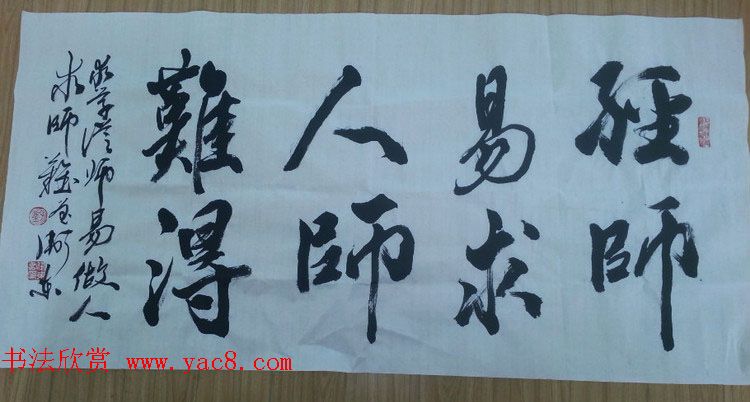 經師
易求
人師
難得
求學從師易做人
求師難
书法欣赏 www.yac8.com